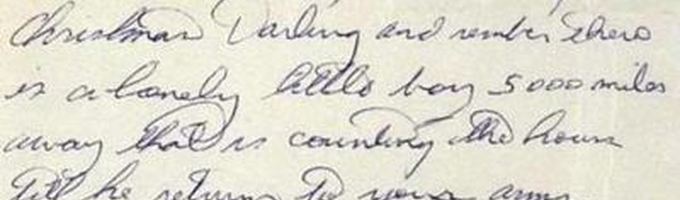 Christmas Darling and rember there
is a lonely little boy 5000 miles
away that is counting the hours
till he returns to your arms.